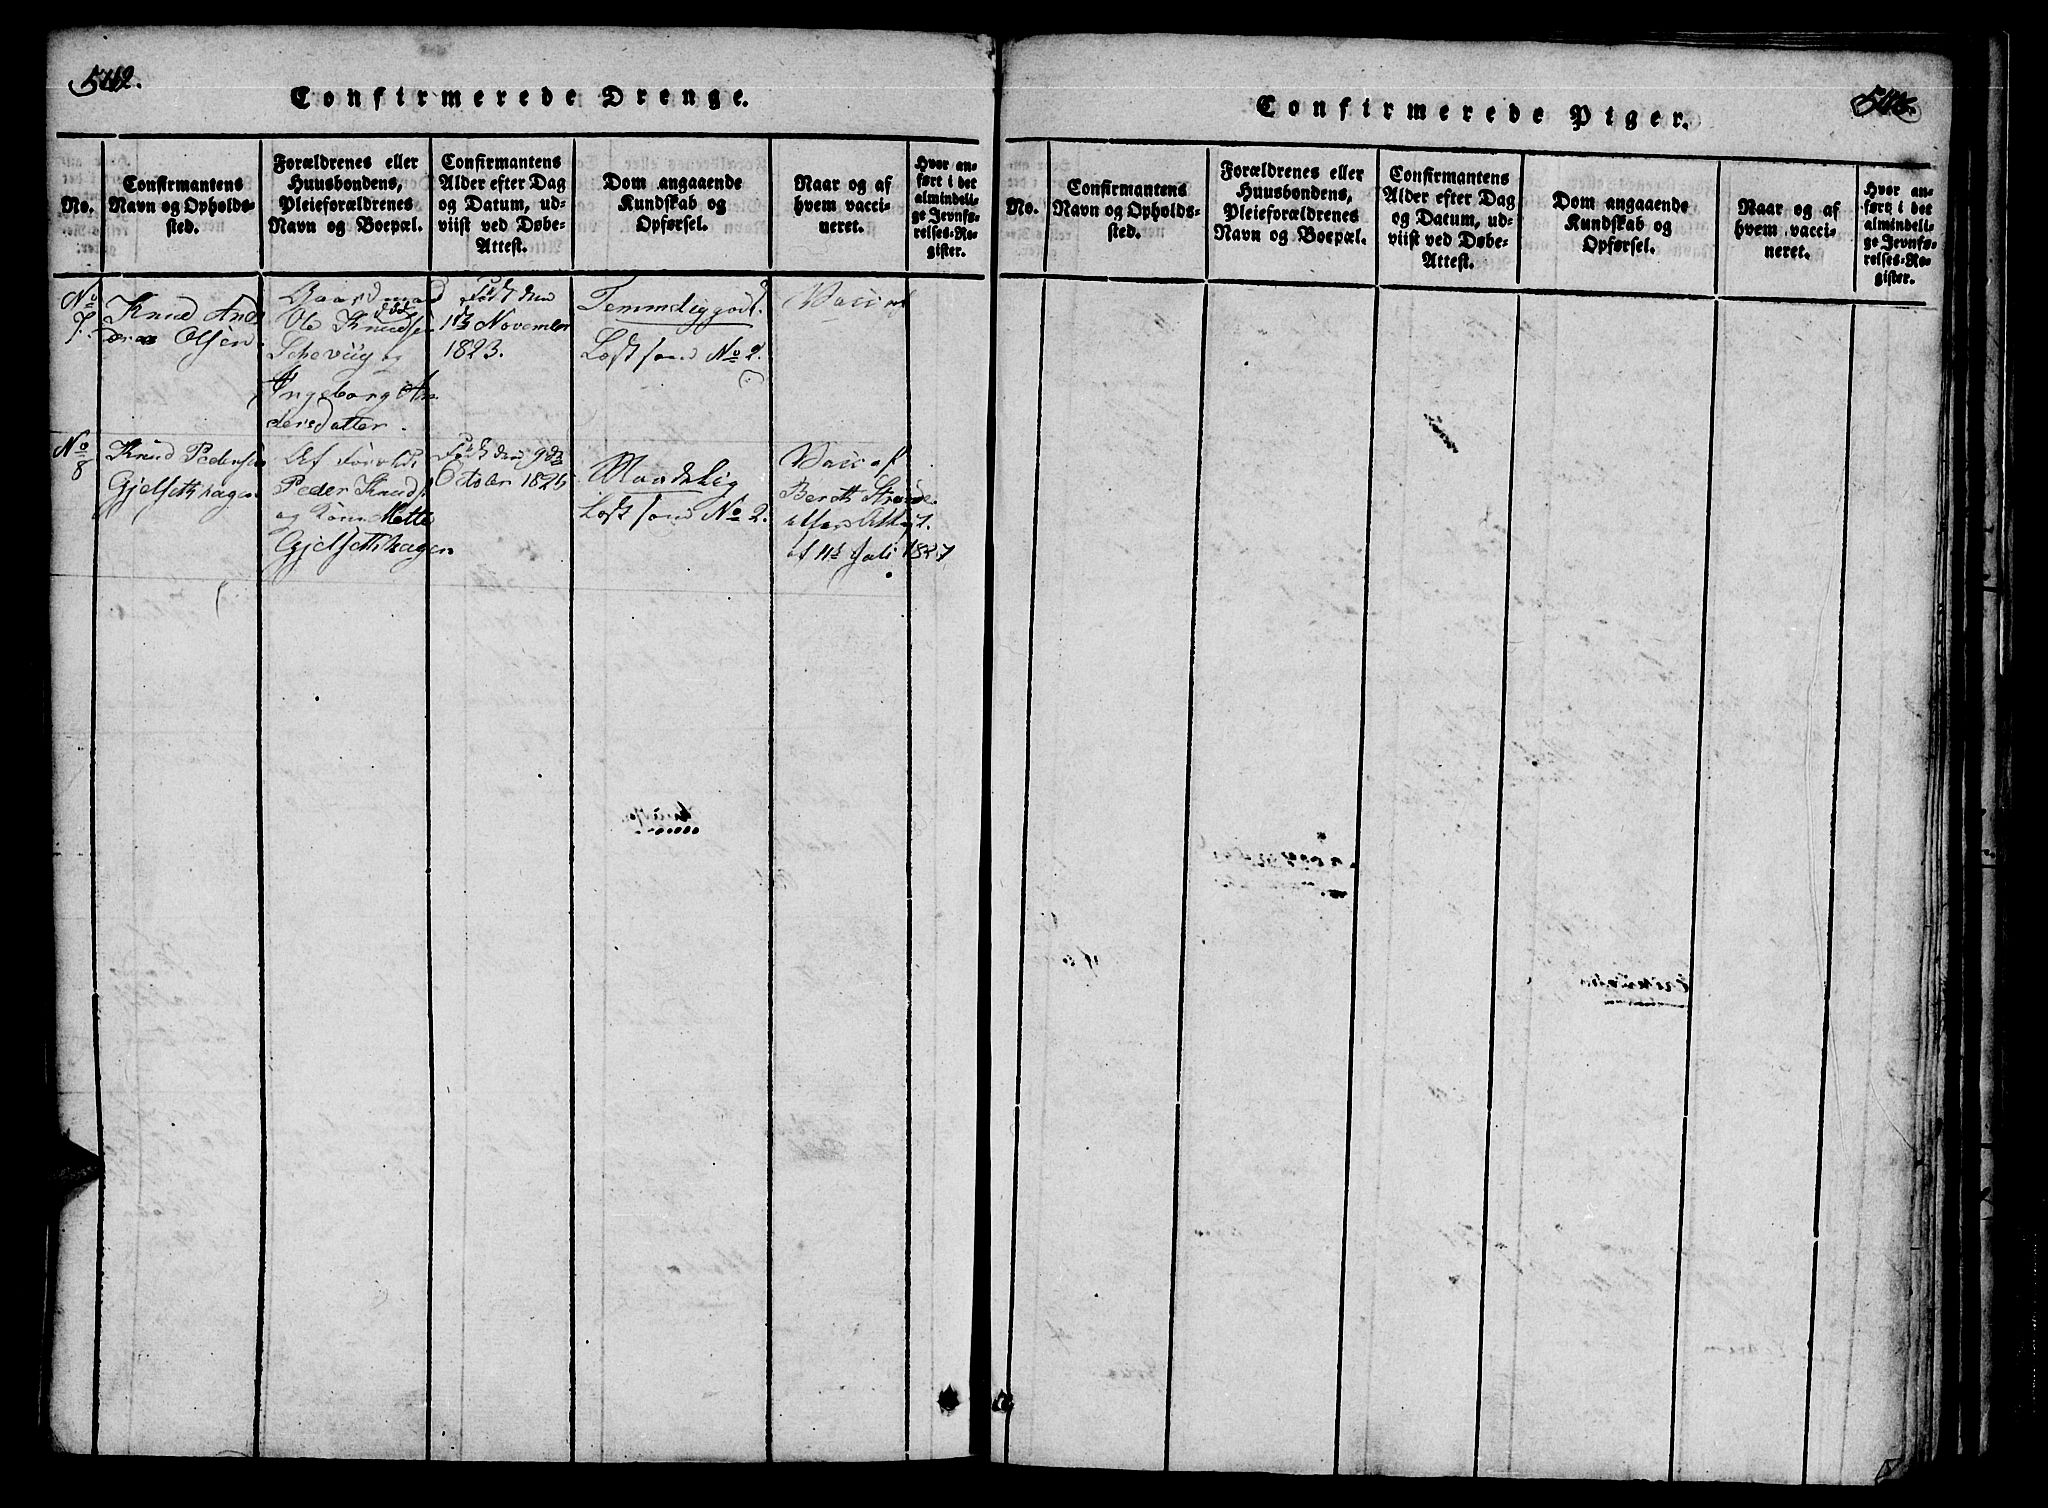 Confirmerede Drenge.
No.
Confirmantens
Navn og Opholds-
sted.
Forældrenes eller
Huusbondens,
Pleieforældrenes
Navn og Boepæl.
Confirmantens
Alder efter Dag
og Datum, ud-
viist ved Døbe-
Attest.
Dom angaaende
Kundskab og
Opførsel.
Naar og af
hvem vacci-
neret.
Hvor an-
ført i det
almindeli-
ge Jevnfø-
relses-Re-
gister.
No
7.
Knud And
Olsen
Gaardmand
Ole Knudsen
og
Ingeborg An
dersdatter.
Født den
November
1823.
Temmelig godt.
Læst No 2.
Vacc af
No
8
Knud Pedersen
Gjelsethhagen
Af
Peder Knuds
og Kone Mette
Gjelsethhagen
Født den 9de
October 1826
Maadelig
Læst No 2.
Vacc af
Bernth Strande
Attest
af 11te Juli 1827
Confirmerede Piger.
No.
Confirmantens
Navn og Opholds-
sted.
Forældrenes eller
Huusbondens,
Pleieforældrenes
Navn og Boepæl.
Confirmantens
Alder efter Dag
og Datum, ud-
viist ved Døbe-
Attest.
Dom angaaende
Kundskab og
Opførsel.
Naar og af
hvem vacci-
neret.
Hvor an-
ført i det
almindeli-
ge Jevnfø-
relses-Re-
gister.